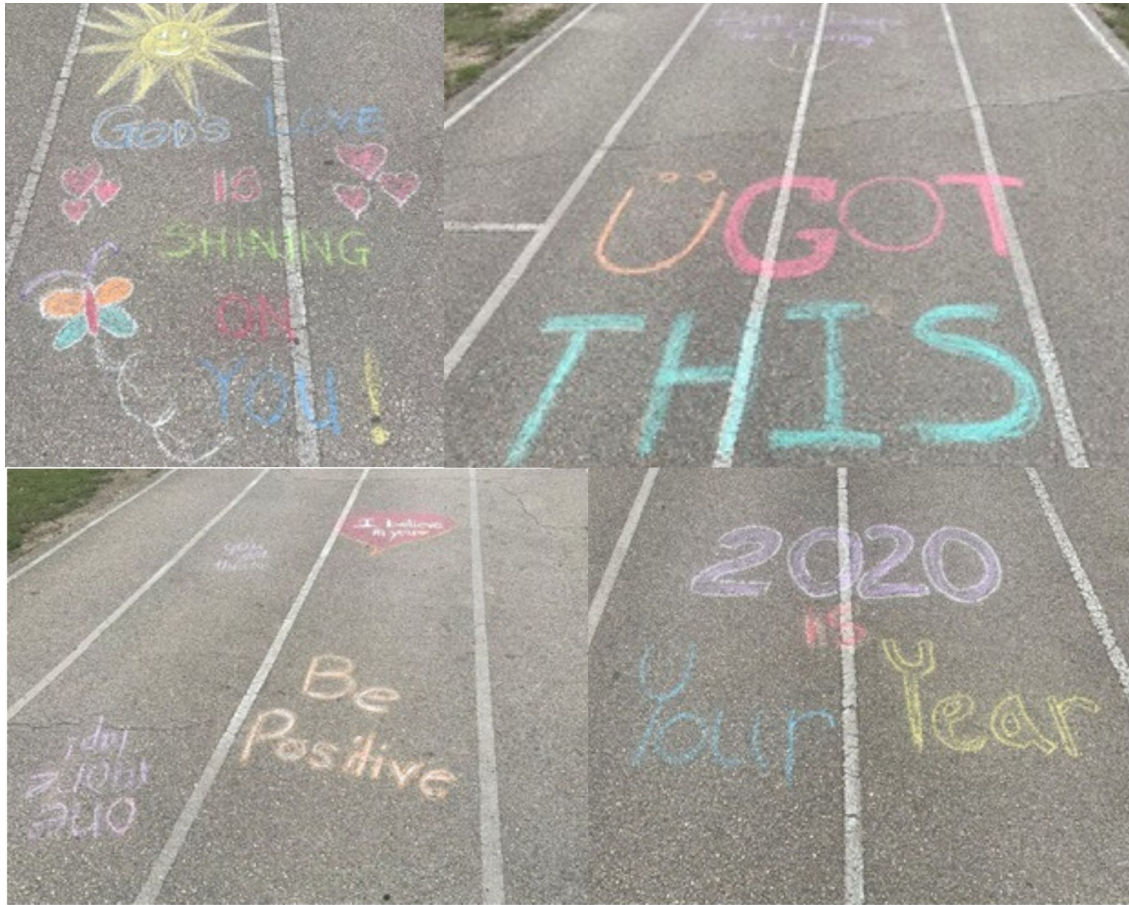 GOD'S LOVE
IS
SHINING
ON
YOU!
Ü GOT
THIS
I believe
in you
Be
Positive
one
more
lap!
2020
IS
Your
Year